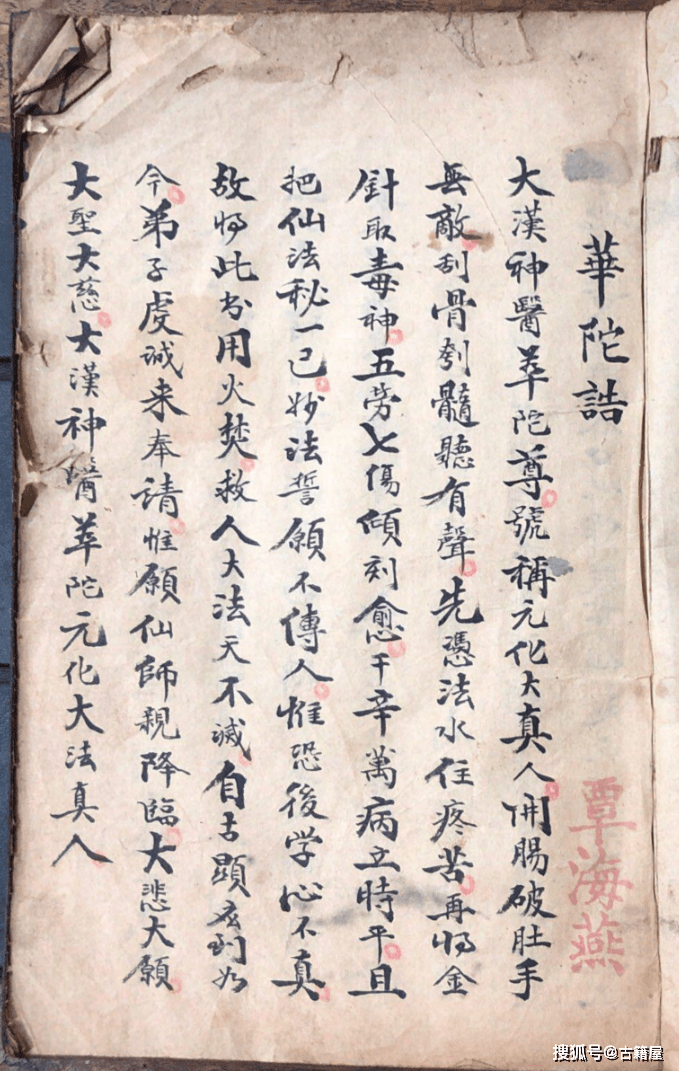 華陀誥
覃海燕
大漢神醫華陀尊號稱元化大真人開腸破肚手
無敵刮骨刳髓聽有聲先憑法水住疼苦再将金
針取毒神五劳七傷傾刻愈千辛萬病立時平且
把仙法秘一己妙法誓願不傳人惟恐後学心不真
故将此书用火焚救人大法天不滅自古顕法到如
今弟子虔诚来奉請惟願仙師親降臨大悲大願
大聖大慈大漢神醫華陀元化大法真人
搜狐号@古籍屋